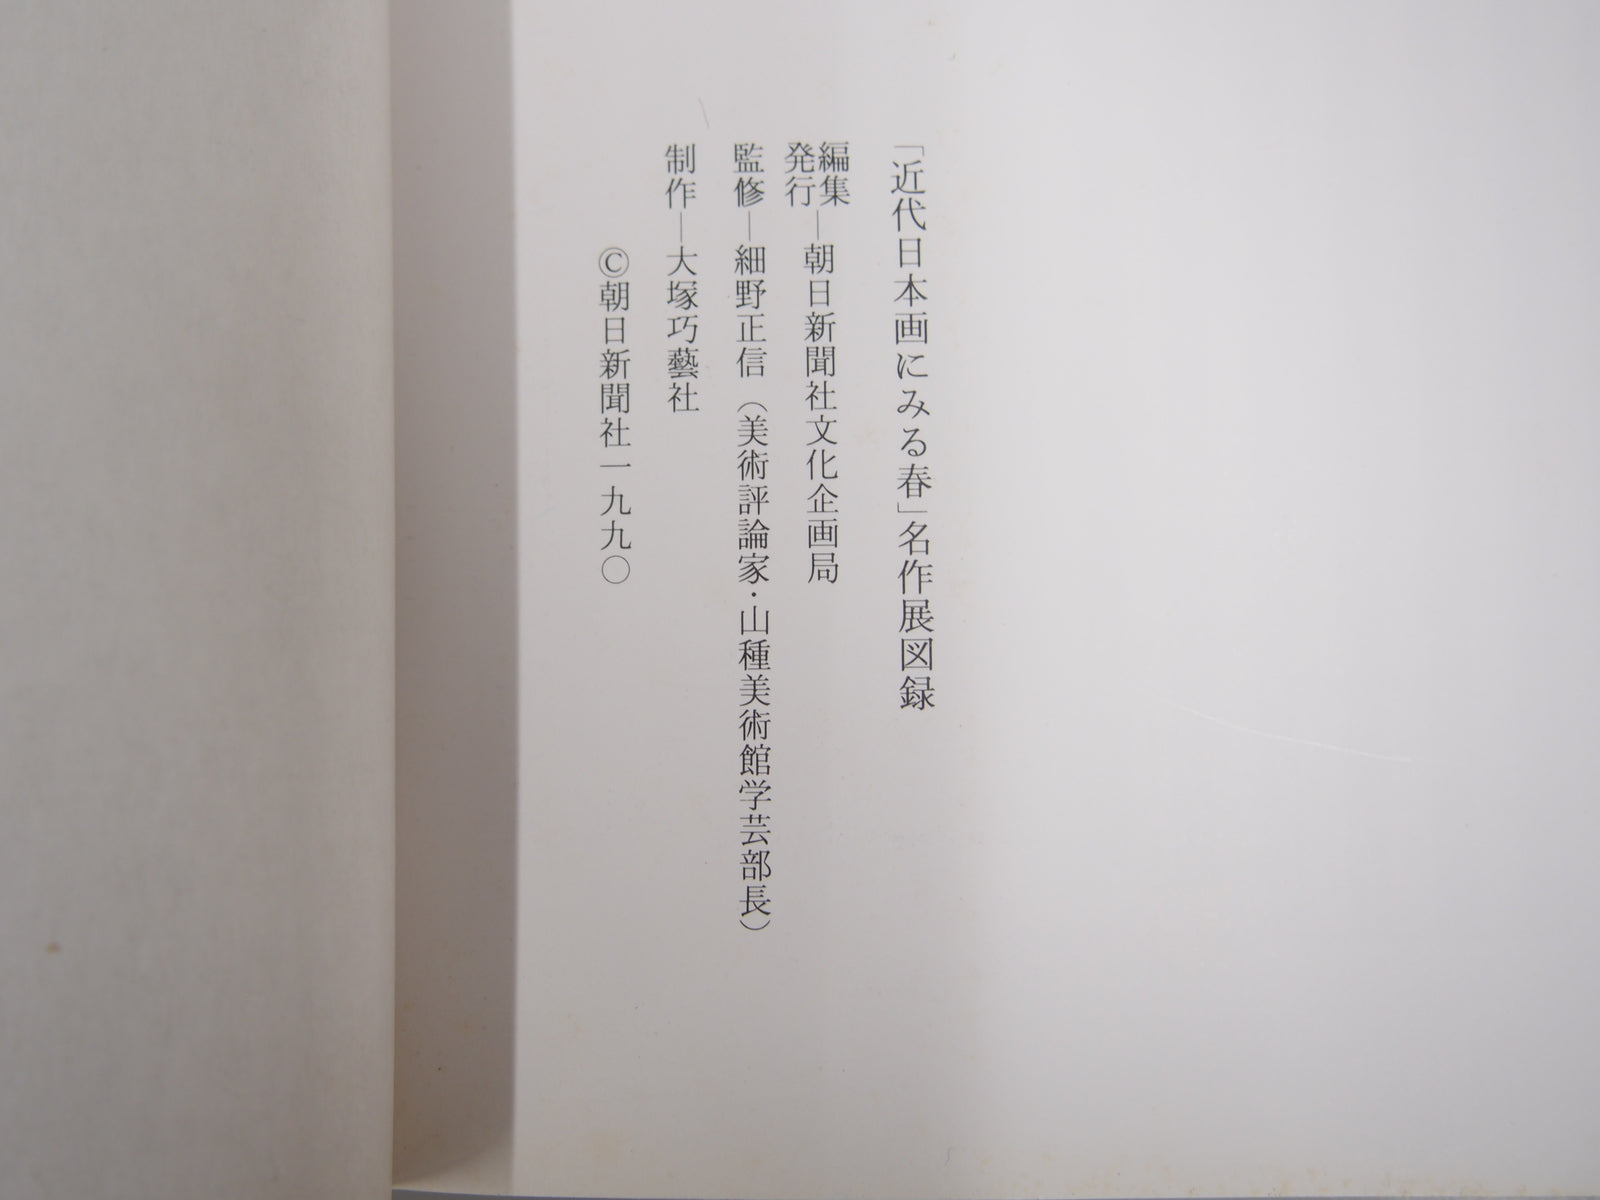 「近代日本画にみる春」名作展図録
編集
発行―朝日新聞社文化企画局
監修―細野正信（美術評論家・山種美術館学芸部長）
制作―大塚巧藝社
©朝日新聞社一九九〇